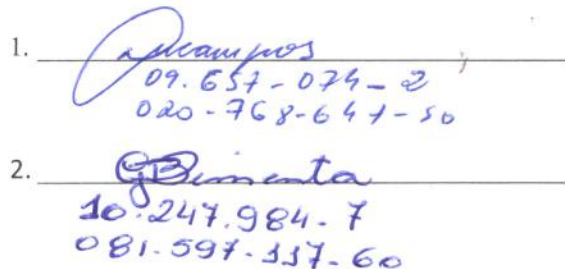 1. Adcampos
09.657-074-2
020-768-647-50
2. GBimenta
10.247.984-7
081.597-117-60